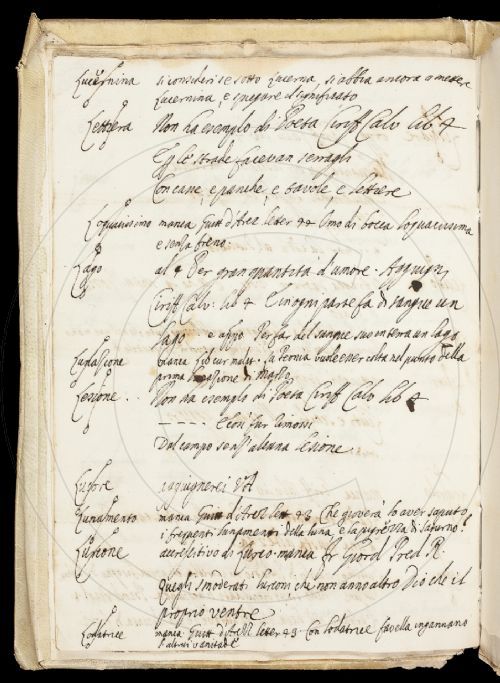 Lucernina si consideri se sotto Lucerna, si abbia ancora a mettere
Lucernina, e spiegare il significato
Lettiera Non ha esempio di Poeta Ciriff Calv lib 4
E gle strade facevan serragli
Con cane, e panche, e tavole, e lettiere
Loquacissimo manca Guitt d'Arez letter 44 Omo di bocca loquacissima
e senza freno.
Lago al 4 Per gran quantità d'umore. Aggiugni
Ciriff Calv. lib 4 E in ogni parte fa di sangue un
lago e appo Per far del sangue suo in terra un lago
Lunazione manca Lib cur malat. la Peonia vuole esser colta nel punto della
prima lunazione di Marzo
Lesione .. Non ha esempio di Poeta Ciriff Calv lib 4
- - - - - E così fur rimossi
Dal campo senz' alcuna lesione
Lucore aggiugnerci V A
Lunamento manca Guitt d'Arez lett 43. Che gioverà lo aver saputo
i frequenti lunamenti della luna, e la pigrezza di saturno.
Lurcone accrescitivo di Lurco. manca fr Giord Pred R.
Quegli smoderati lurconi che non anno altro Dio che il
proprio ventre
Lodatrice manca Guitt d'Arez letter 43. Con lodatrice favella ingannano
l'altrui vanitade